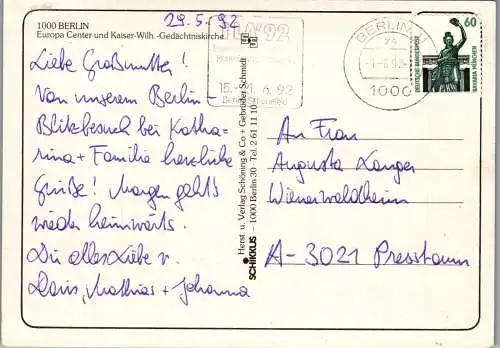 1000 BERLIN
Europa Center und Kaiser-Wilh.-Gedächtniskirche
29.5.92
Liebe Großmutter!
Von unserem Berlin-
Blitzbesuch bei Katha=
rina + Familie herzliche
Grüße! Morgen geht's
wieder heimwärts.
Dir alles Liebe v.
Doris, Mathias + Johanna
Herst. u. Verlag Schöning & Co + Gebrüder Schmidt
SCHIKKUS – 1000 Berlin 30 - Tel. 2 61 11 10
'92
15. - 21. 6. 92
BERLIN 11
-1-6.92
1000
60
DEUTSCHE BUNDESPOST
BAVARIA MÜNCHEN
An Frau
Augusta Langer
Wienerwaldheim
A-3021 Pressbaum